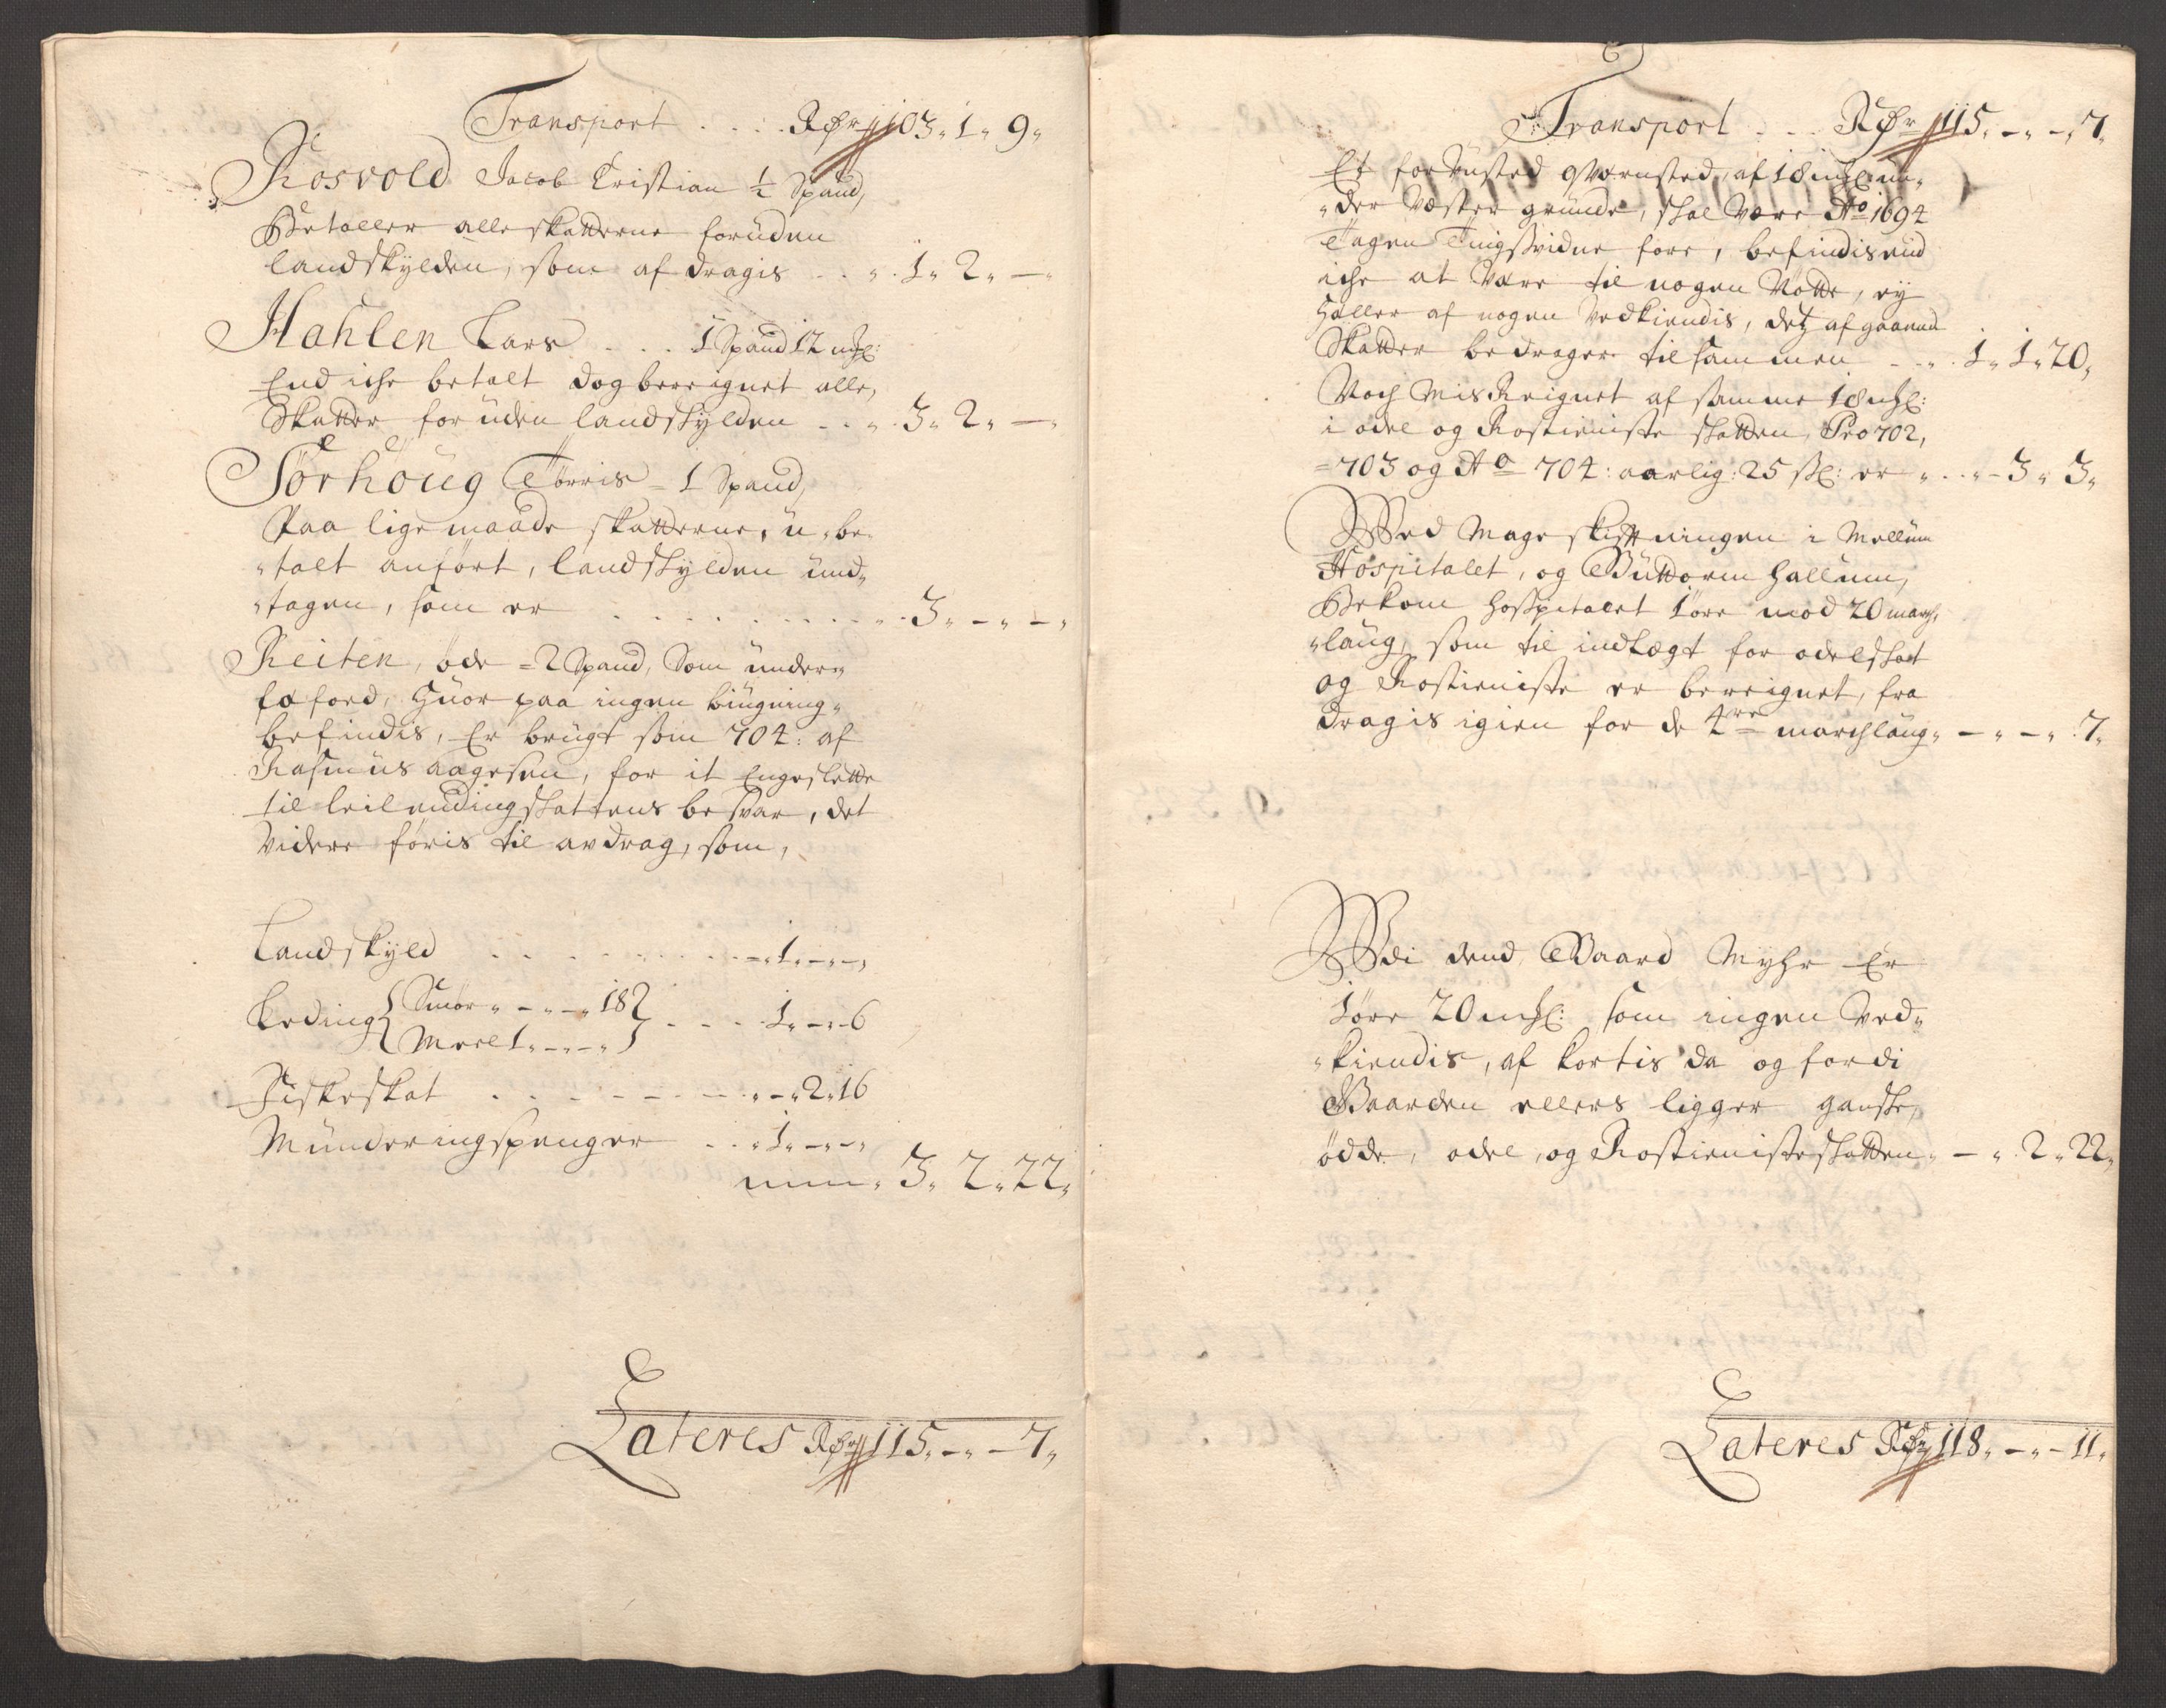 Transport . . . . Rdr 103„ 1„ 9„
Rosvold Jacob Cristian ½ Spand,
Betaller alle skatterne foruden
landskylden, som af dragis . . „ . 1„ 2„ —„
Hahlen Lars . . . . 1 Spand 12 mkl:
End iche betalt dog bereignet alle,
Skatter for uden landskylden . . „ . 3„ 2„ —„
Sørhøug Tørris = 1 Spand,
Paa lige maade skatterne, u„be„
„talt anført, landskylden und„
„tagen, som er . . . . . . . . . „ . 3„ —„ —„
Reiten, øde = 2 Spand, Som under„
fæ foed, Huor paa ingen biugning„
befindis, Er brugt som 704: af
Rasmus Aagesen, for it Engeslette
til leilendingskattens besvar, det
videre føris til avdrag, som,
Landskyld . . . . . . . . . —„ 1„ —„ —„
Leding { Smør „ —„ —„ 18 } . . . . 1„ —„ 6
{ Meel 1„ —„ —„ }
Fiskeskat . . . . . . . „ —„ 2„ 16
Munderingspenger . . „ 1„ —„ —„
„ 3„ 2„ 22„
Lateres Rdr 115„ —„ —7„
Transport . . . Rdr 115„ —„ —„ 7„
Et forønsted qværnsted, af 18 mkl: un„
„der Væster grunde, skal være Ao 1694
Tagen Tingsvidne fore, befindis end
iche at være til nogen Nøtte, ey
Heller af nogen Vedkiendis, detz af gaaende
Skatter bedrager tilsammen . . „ . 1„ 1„ 20„
Noch Mis Reignet af samme 18 mkl:
i odel og Rostieniste skatten, Pro 702,
=703 og Ao 704: aarlig: 25 sl: er „ . . „ — 3„ 3„
Wed Mage skiftningen i Mellum
Hospitalet, og Buttorm Hallum,
Bekom Hospitalet 1 øre mod 20 march„
„laug, som til indlægt for odelskat
og Rostieniste er bereignet, fra
dragis igien for de 4re marchlaug„ —„ —„ 7„
Udi dend Gaard Myhr Er
1 øre 20 mkl: som ingen Ved„
„kiendis, af kortis da og fordi
Gaarden ellers ligger ganske,
ødde, odel, og Rostienisteskatten„ —„ 2„ 22„
Lateres Rdr 118„ —„ — 11„